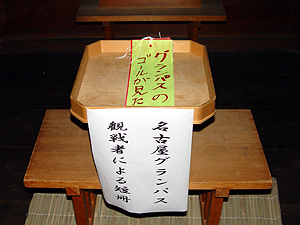 グランパスの
ゴールが見た
名古屋グランパス
観戦者による短冊